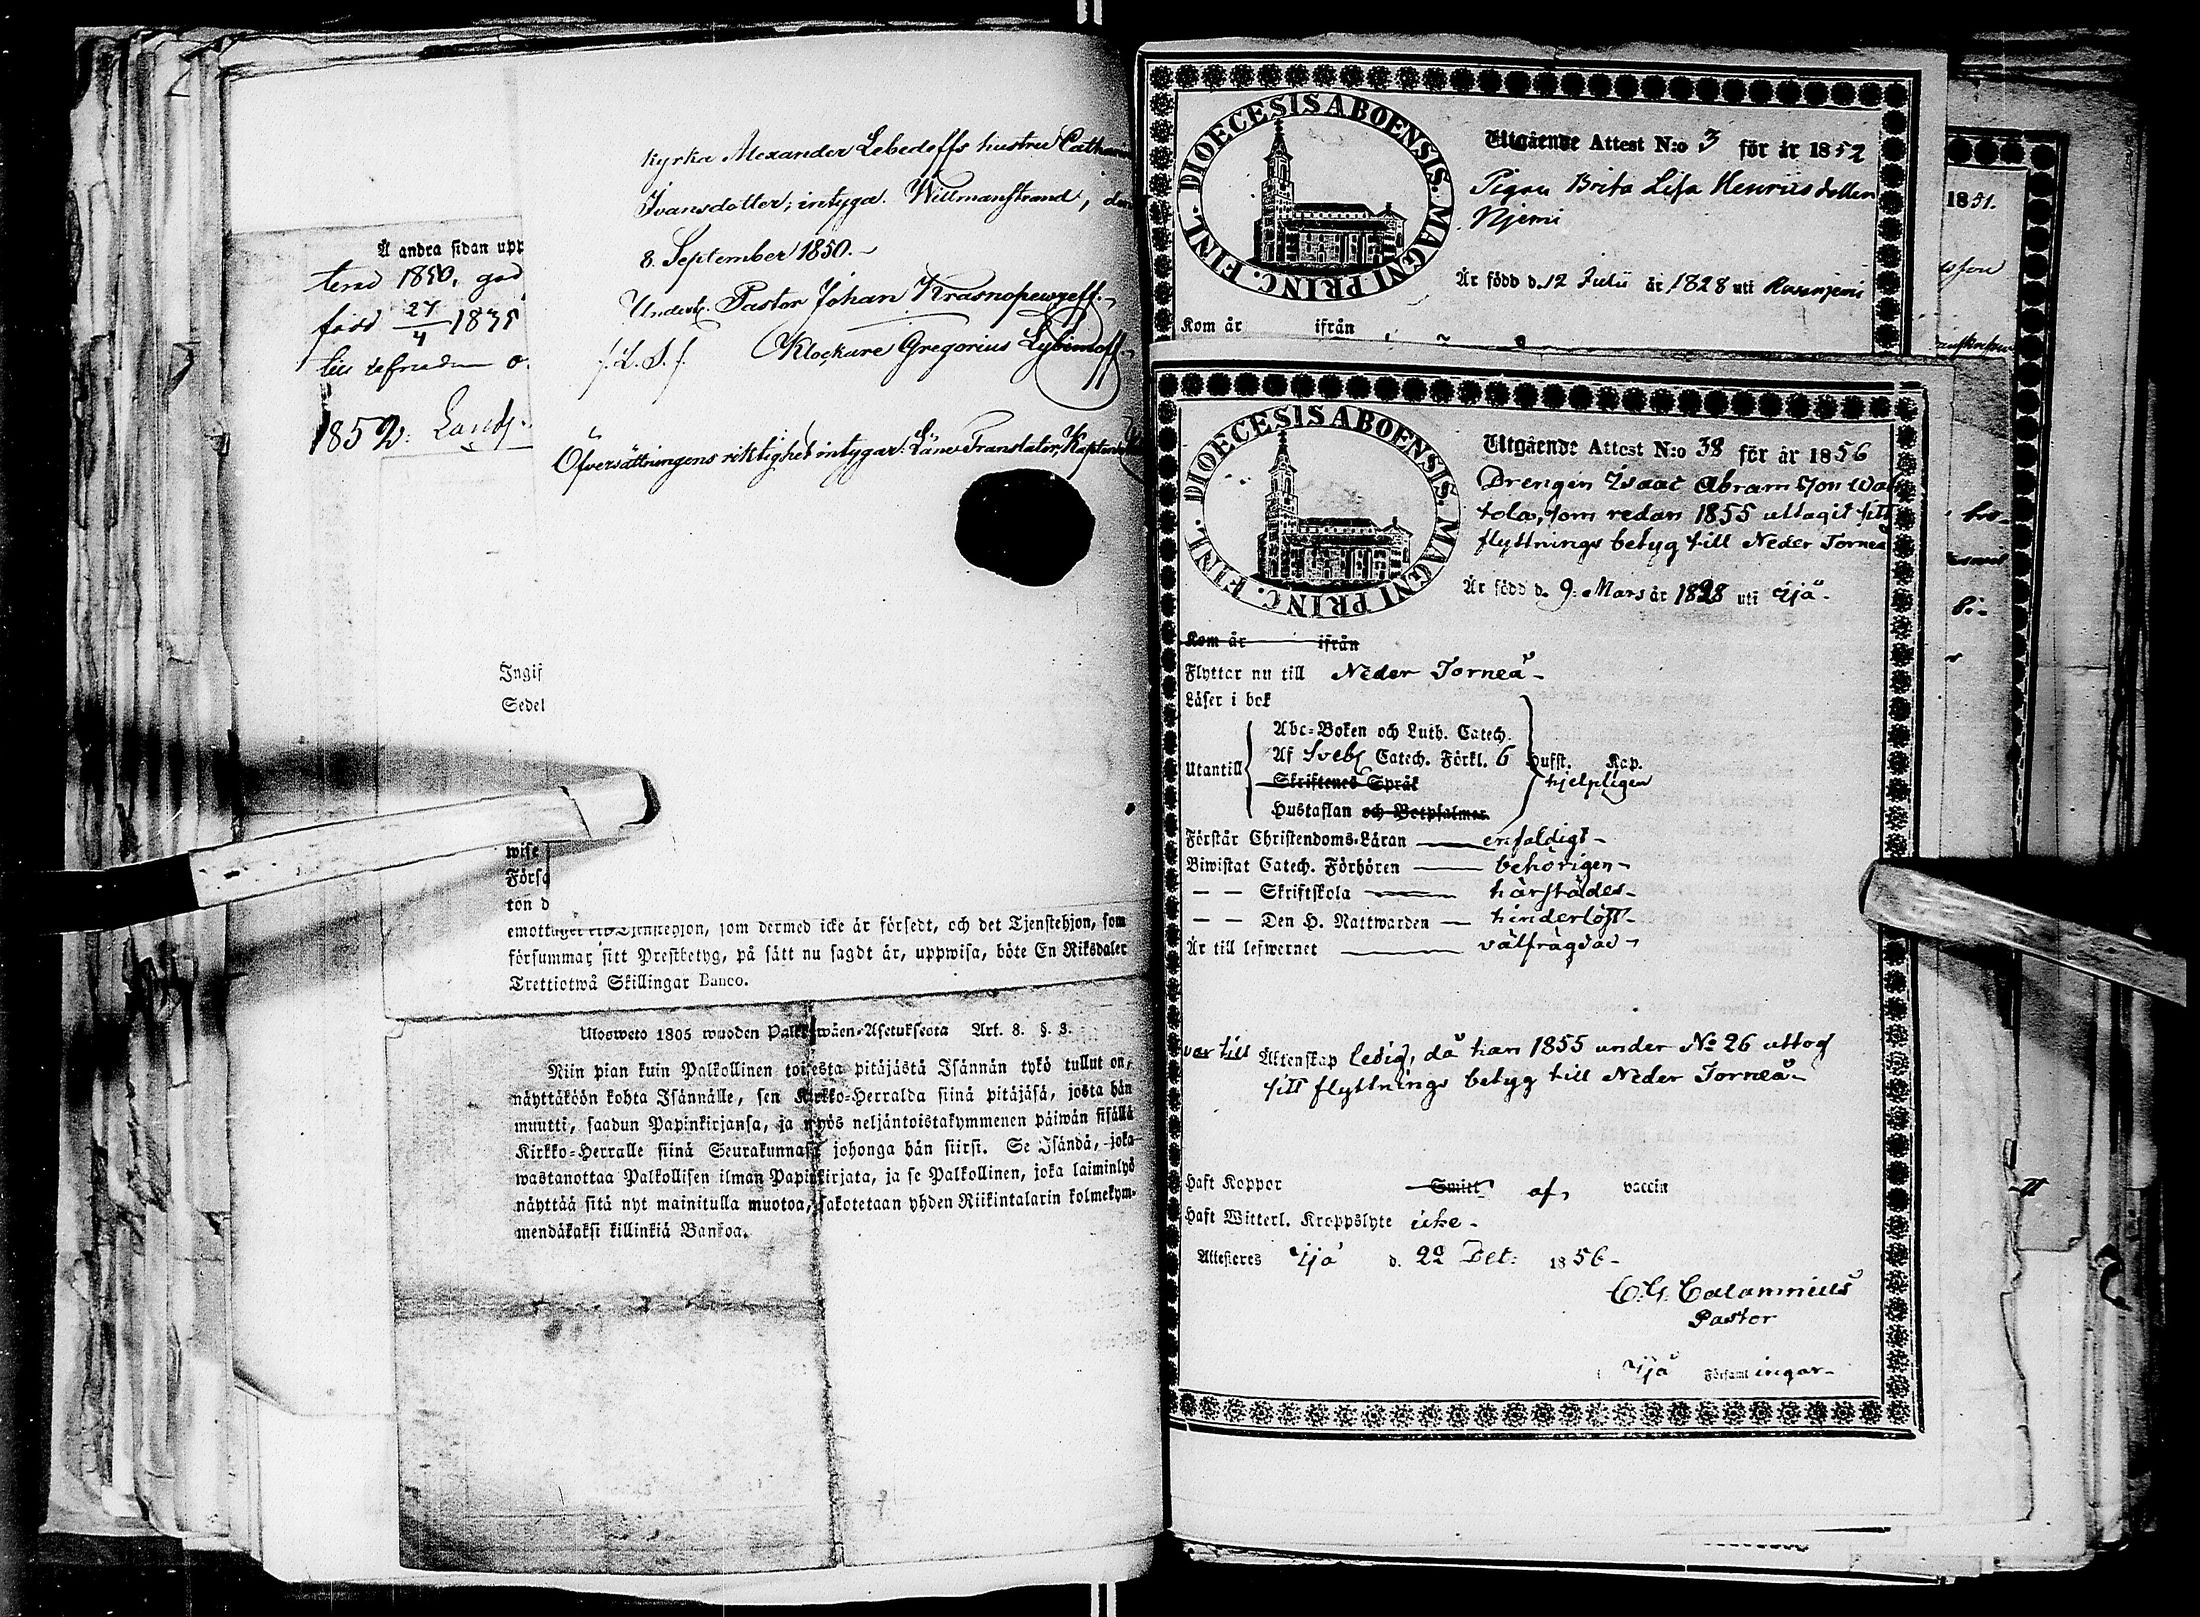 kyrka Alexander Lebedeffs hustru Cathar
Ivansdotter; intygar. Willmanstrand, den
8. September 1850.-
Underk. Pastor Johan Krasnopewzeff.-
/:L.S.:/ Klockare Gregorius Lybimoff.-
Öfversättningens riktighet intygar: Läne Translator, Kapten
Å andra sidan upp
terad 1850, god
född 27/4 1835
1852.
Ingif
Sedel
wise
Förso
ton d
emottager ett Tjenstehjon, som dermed icke är försedt, och det Tjenstehjon, som
försummar sitt Prestbetyg, på sätt nu sagdt är, uppwisa, böte En Riksdaler
Trettiotwå Skillingar Banco.
Ulosweto 1805 wuoden Palkkawäen-Asetuksesta Art. 8. §. 3.
Niin pian kuin Palkollinen toisesta pitäjästä Isännän tykö tullut on,
näyttäköön kohta Isännälle, sen Kirkko-Herralda siinä pitäjäsä, josta hän
muutti, saadun Papinkirjansa, ja myös neljäntoistakymmenen päiwän sisällä
Kirkko-Herralle siinä Seurakunnasa johonga hän siirsi. Se Isändä, joka
wastanottaa Palkollisen ilman Papinkirjata, ja se Palkollinen, joka laiminlyö
näyttää sitä nyt mainitulla muotoa, sakotetaan yhden Riikintalarin kolmekym-
mendäkaksi killinkiä Bankoa.
DIOECESIS ABOENSIS. MAGNI PRINC. FINL.
Utgående Attest N:o 3 för år 1852
Pigan Brita Lisa Henriksdotter
Njemi
Är född d. 12 Julii år 1828 uti
Kom år ifrån
1851.
DIOECESIS ABOENSIS. MAGNI PRINC. FINL.
Utgående Attest N:o 38 för år 1856
Drengen Isaac Abramsson Wal
tola, som redan 1855 uttagit sitt
flyttnings betyg till Neder Torneå
Är född d. 9. Mars år 1828 uti Ijå.
Kom år ifrån
Flyttar nu till Neder Torneå-
Läser i bok
Utantill
Abc-Boken och Luth. Catech.
Af Sveb. Catech. Förkl. 6 Hufst. Kap.
Skriftenes Språk hjelpligen
Hustaflan och Botpsalmer.
Förstår Christendoms-Läran enfaldigt-
Biwistat Catech. Förhören behörigen-
— — Skriftskola härstädes-
— — Den H. Nattwarden hinderlöst-
Är till lefwernet välfrägdad-
var till Äktenskap ledig, då han 1855 under No 26 uttog
sitt flyttnings betyg till Neder Torneå-
Haft Koppor Smitt af, vaccin
Haft Witterl. Kroppslyte icke-
Attesteres Ijå d. 22 Det: 1856-
C. G. Calamnius
Pastor
Ijå Församlingar-